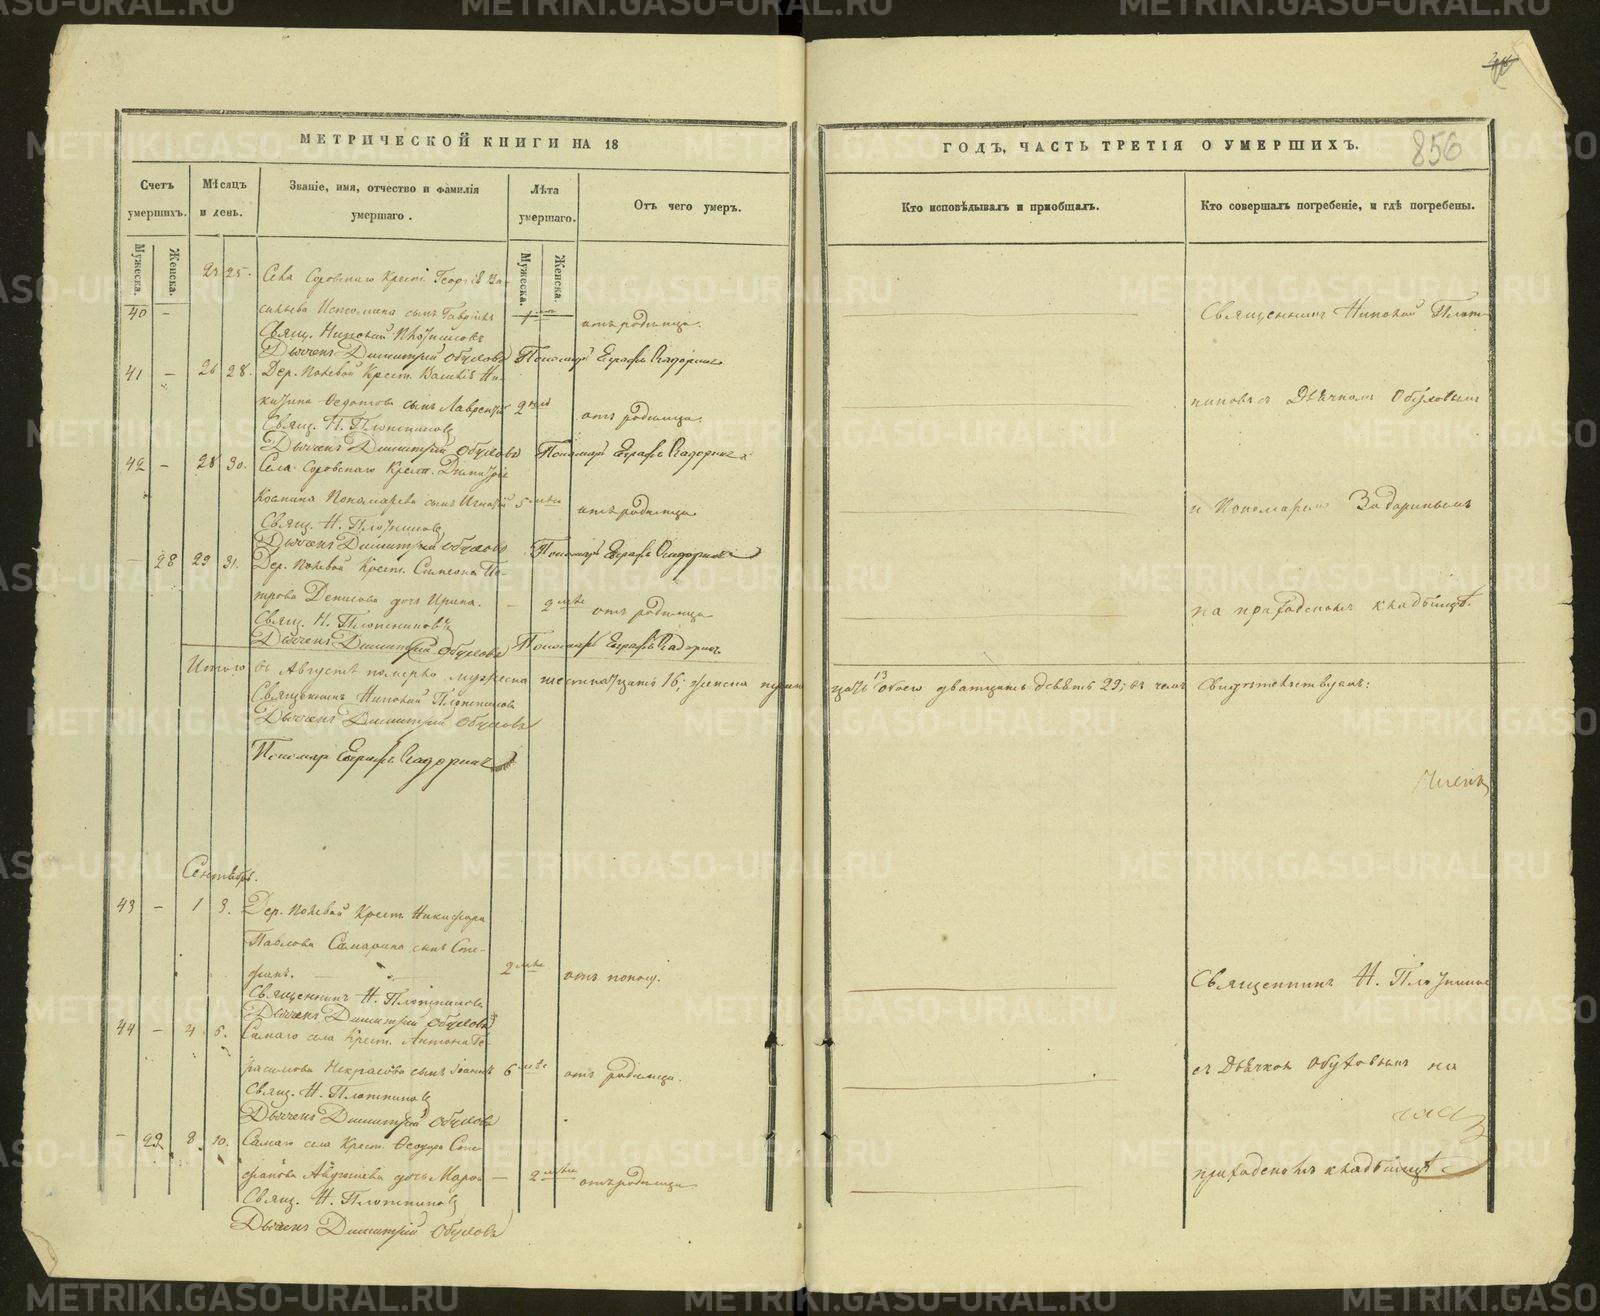 МЕТРИЧЕСКОЙ КНИГИ НА 18
Счетъ умершихъ.
Мужеска.
Женска.
Мѣсяцъ и день.
Званіе, имя, отчество и фамилія умершаго.
Лѣта умершаго.
Мужеска.
Женска.
Отъ чего умеръ.
23 25. Села Крест. Георгія Ва-
40 — сына Гавріилъ 1 отъ родимца.
Свящ. Николай Плотниковъ
Дьячекъ Димитрій Обуховъ Пономарь Евграфъ Задоринъ
41 — 26 28. Дер. Полевой Крест. Ни-
Федотова сынъ Лаврентій 2 отъ родимца.
Свящ. Н. Плотниковъ
Дьячекъ Димитрій Обуховъ Пономарь Евграфъ Задоринъ
42 — 28 30. Села Крест. Димитрія
Пономарева сынъ Игнатій 5 отъ родимца
Свящ. Н. Плотниковъ
Дьячекъ Димитрій Обуховъ Пономарь Евграфъ Задоринъ
— 28 29 31. Дер. Полевой Крест. Симеона Пе-
трова Денисова дочь Ирина. — 2 отъ родимца
Свящ. Н. Плотниковъ
Дьячекъ Димитрій Обуховъ Пономарь Евграфъ Задоринъ
Итого въ Августѣ померло мужеска шестнатцать 16; женска
Священникъ Николай Плотниковъ
Дьячекъ Димитрій Обуховъ
Пономарь Евграфъ Задоринъ
Сентябрь.
43 — 1 3. Дер. Полевой Крест. Никифора
Павлова Самарина сынъ Сте-
фанъ. 2 отъ поносу.
Священникъ Н. Плотниковъ
Дьячекъ Димитрій Обуховъ
44 — 4 6. Самаго села Крест. Антона Ге-
расимова Некрасова сынъ Іоаннъ 6 отъ родимца.
Свящ. Н. Плотниковъ
Дьячекъ Димитрій Обуховъ
— 29 8 10. Самаго села Крест. Феодора Сте-
фанова дочь — 2 отъ родимца
Свящ. Н. Плотниковъ
Дьячекъ Димитрій Обуховъ
ГОДЪ, ЧАСТЬ ТРЕТІЯ О УМЕРШИХЪ.
856
Кто исповѣдывалъ и приобщалъ.
Кто совершалъ погребеніе, и гдѣ погребены.
Священникъ Николай Плот-
никовъ съ Дьячкомъ Обуховымъ
и Пономаремъ Задоринымъ
на приходскомъ кладбищѣ.
цать 13 обоего дватцать девять 29; въ чемъ Свидѣтельствуемъ:
Священникъ Н. Плотников
съ Дьячком Обуховымъ на
приходскомъ кладбищѣ
METRIKI.GASO-URAL.RU